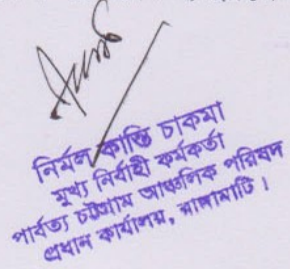 নির্মল কান্তি চাকমা
মুখ্য নির্বাহী কর্মকর্তা
পার্বত্য চট্টগ্রাম আঞ্চলিক পরিষদ
প্রধান কার্যালয়, রাঙ্গামাটি।